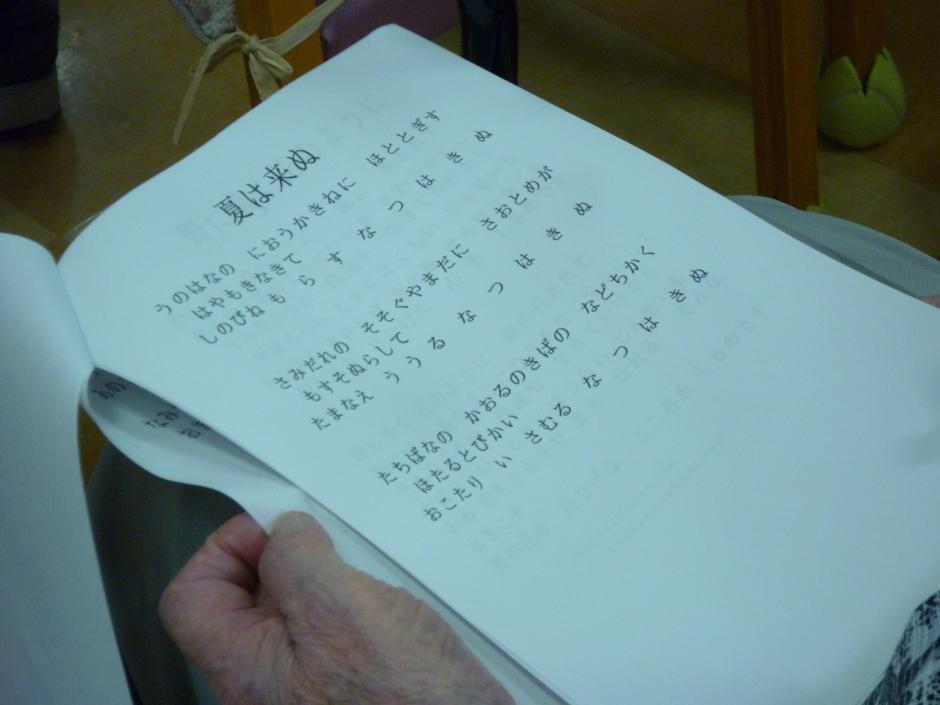 夏は来ぬ
うのはなの　におうかきねに　ほととぎす
はやもきなきて
しのびね　も　ら　す　な　つ　は　き　ぬ
さみだれの　そそぐやまだに　さおとめが
もすそぬらして
たまなえ　う　う　る　な　つ　は　き　ぬ
たちばなの　かおるのきばの　などちかく
ほたるとびかい
おこたり　い　さむる　な　つ　は　き　ぬ